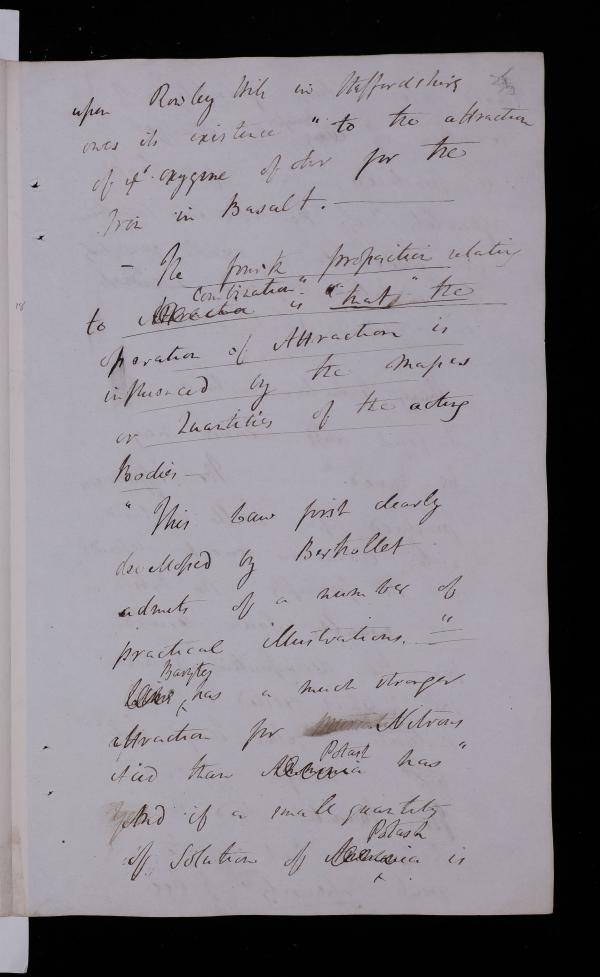 upon Rowley Hill in Staffordshire
owes its existence " to the attraction
of ye. oxygene of air for the
Iron in Basalt. —
— The fourth proposition relating
combination
to Attraction is " "that" the
operation of Attraction is
influenced by the masses
or Quantities of the acting
Bodies —
" This Law first clearly
developed by Berthollet
admits of a number of
practical illustrations. "
Barytes
Lime ^ has a much stronger
attraction for Nitrous
Potash
Acid than Ammonia has "
And if a small quantity
Potash
of Solution of Ammonia is
^